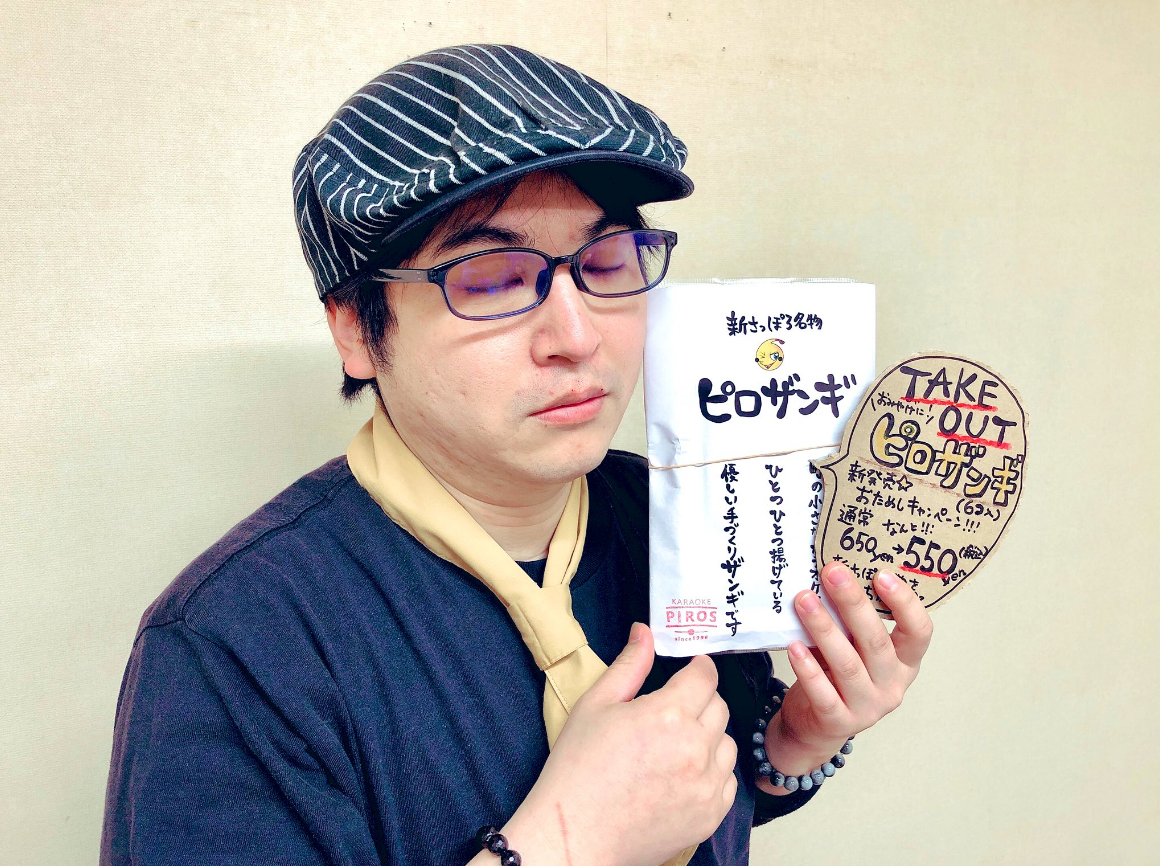 新さっぽろ名物
ピロザンギ
ひとつひとつ揚げている
優しい手づくりザンギです
KARAOKE
PIROS
since
TAKE
OUT
おみやげに!
ピロザンギ
新発売☆
(6コ入)
おためしキャンペーン!!!
通常 なんと!!
650yen→550yen(税込)